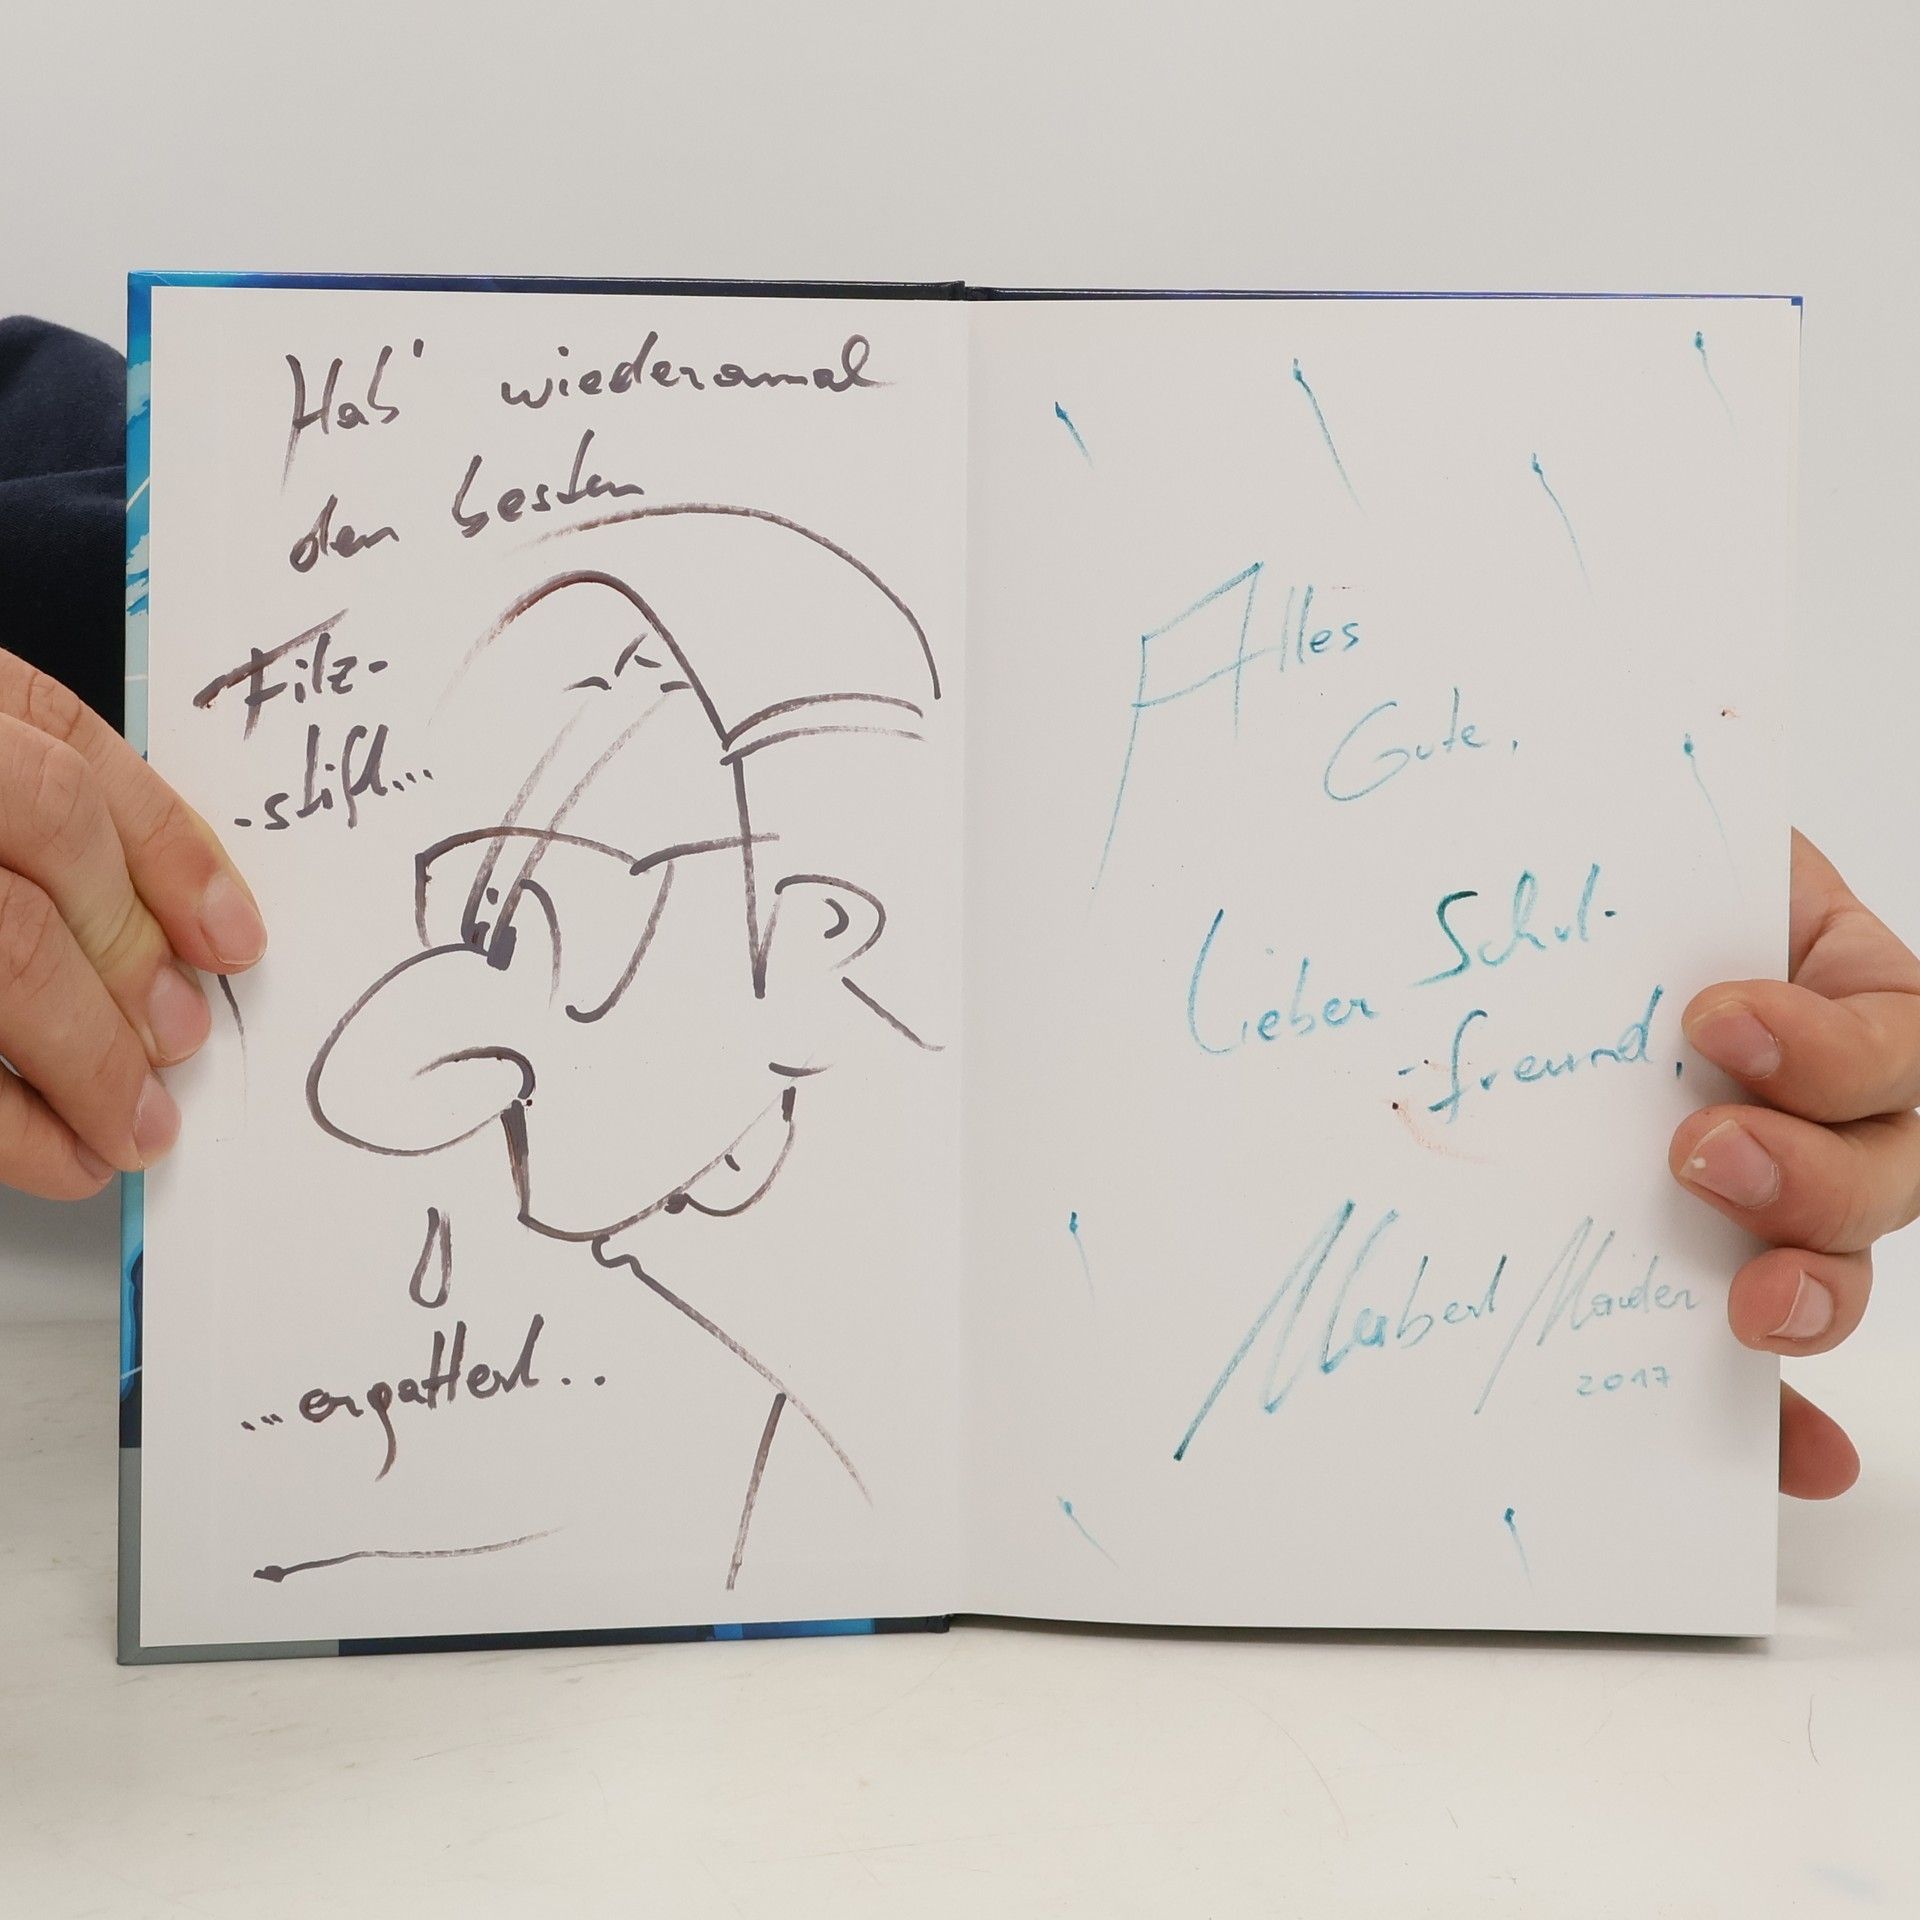 Hab' wiederamal
den besten
Filz-
-stift...
...ergattert..
Alles
Gute,
Lieber Schul-
-freund,
Herbert
2017